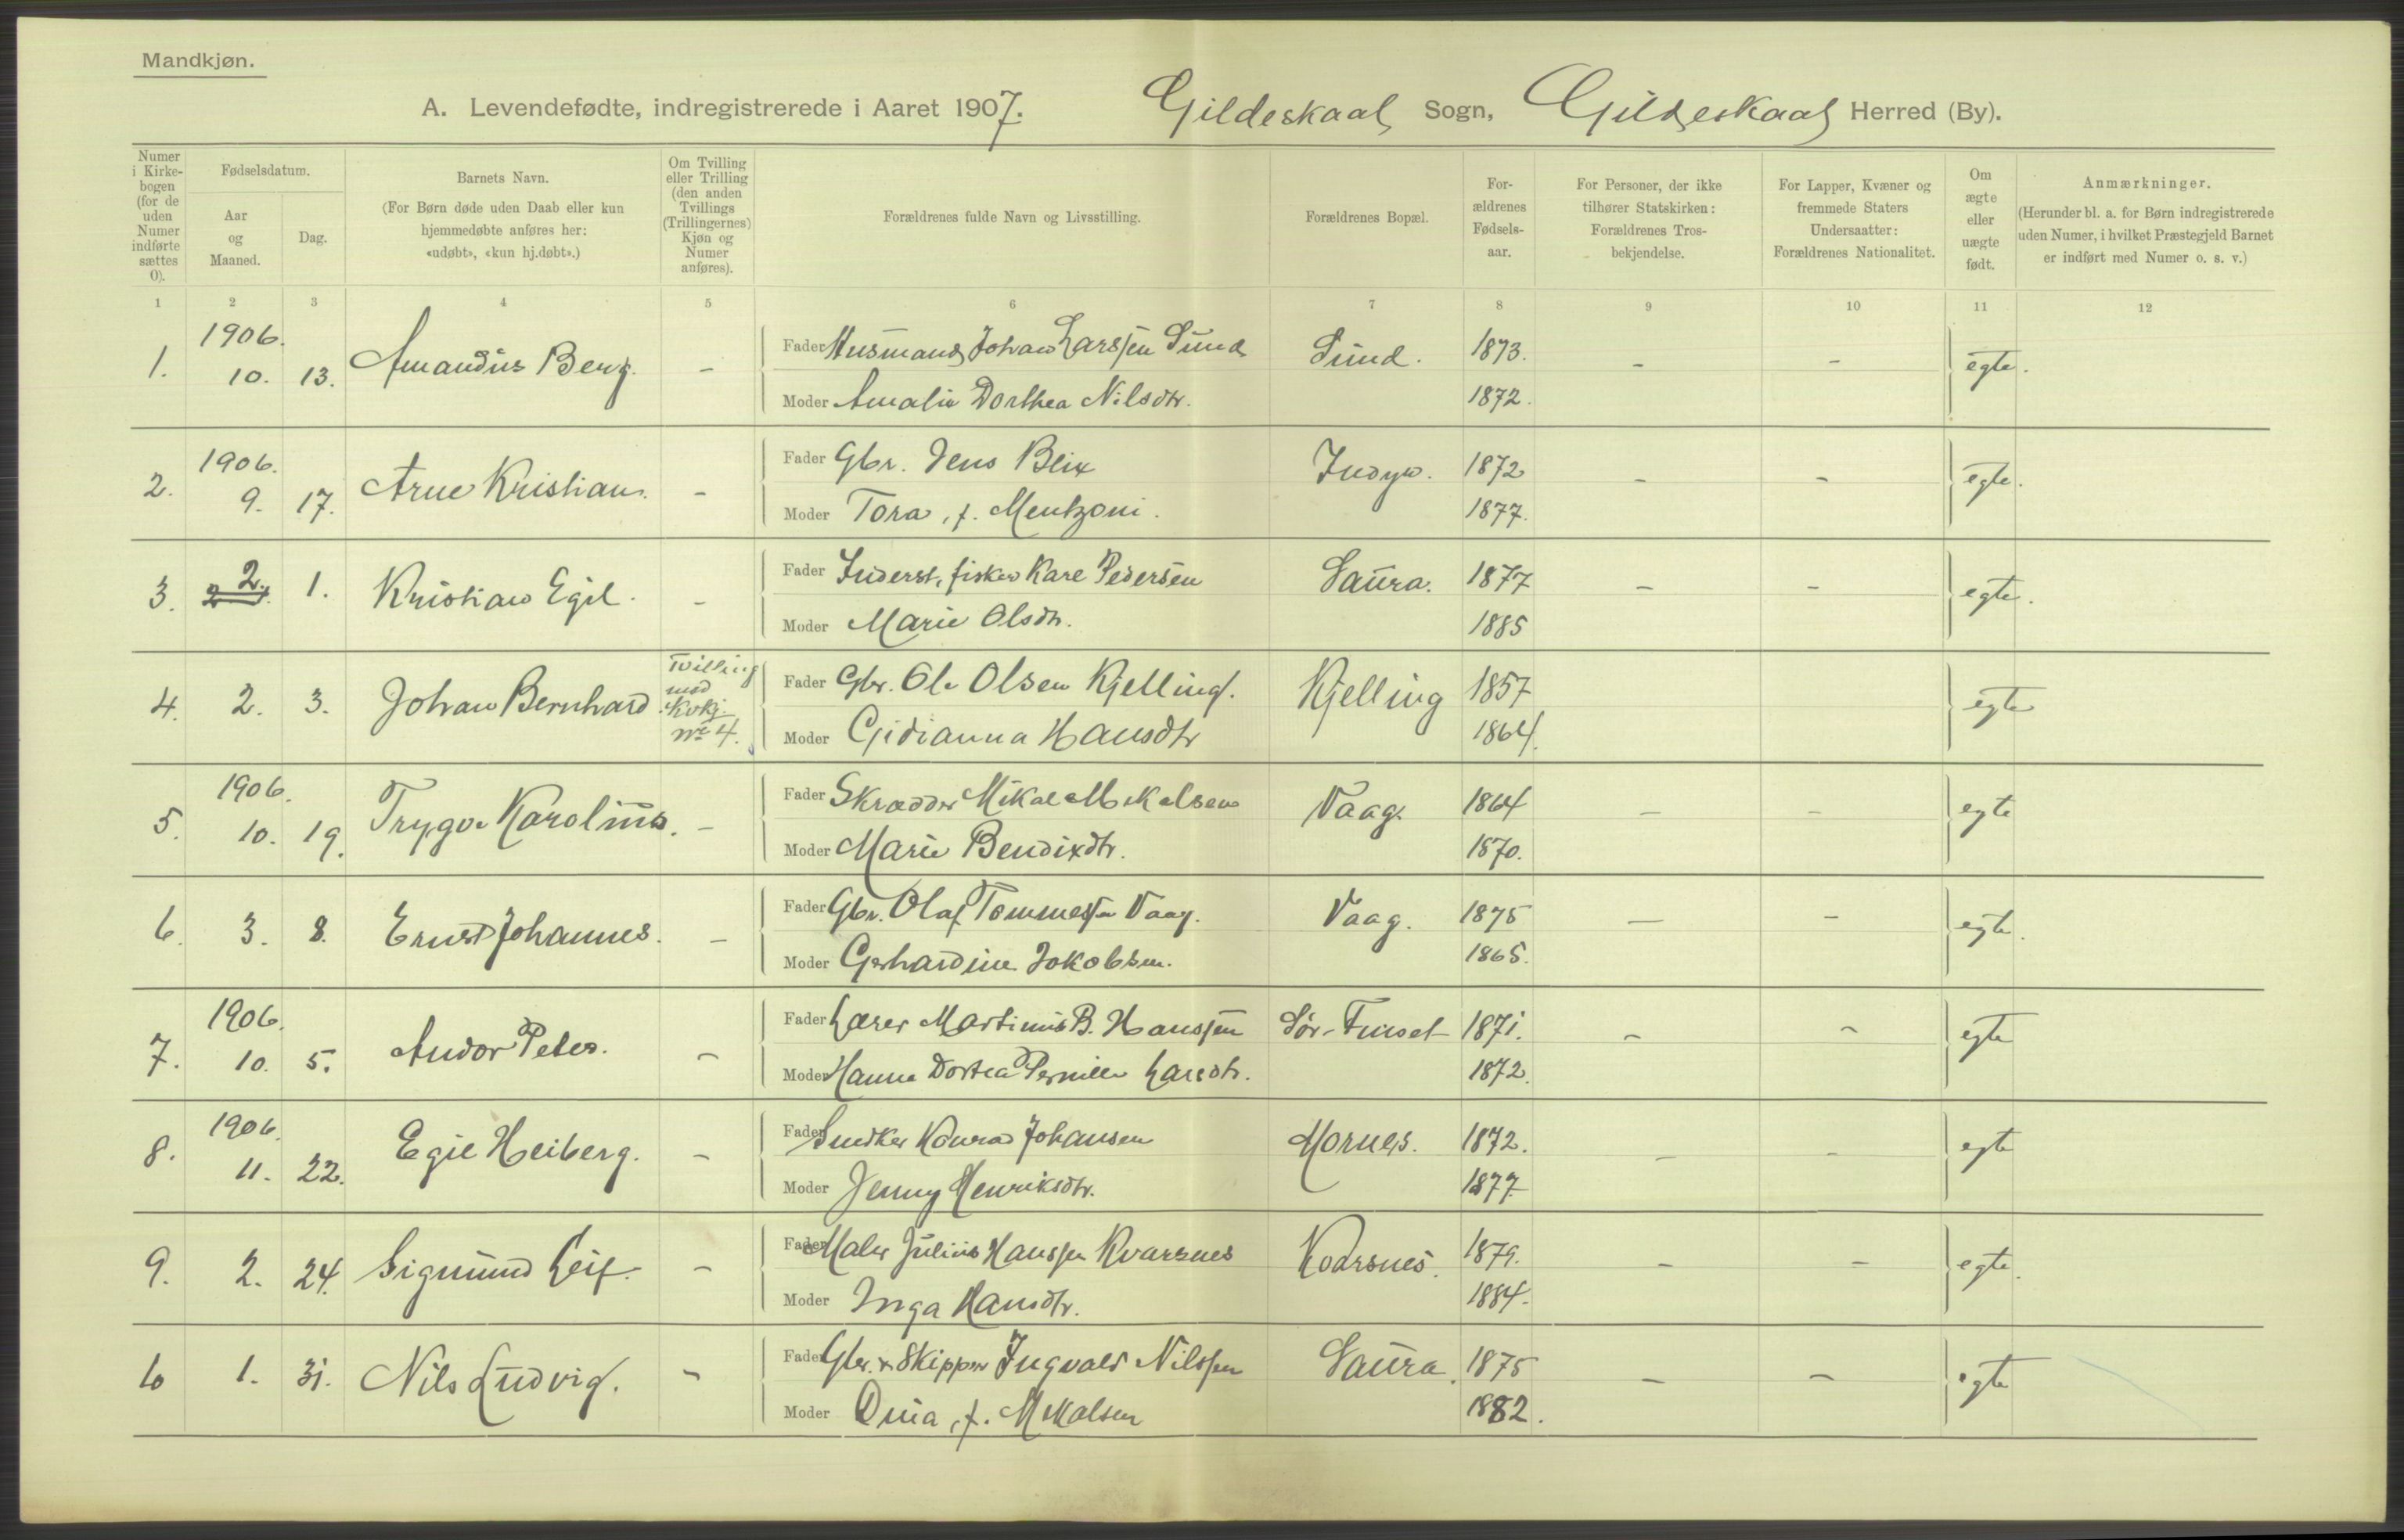 Mandkjøn.
A. Levendefødte, indregistrerede i Aaret 1907. Gildeskaal Sogn, Gildeskaal Herred (By).
Numer i Kirkebogen (for de uden Numer indførte sættes 0).
Fødselsdatum.
Aar og Maaned.
Dag.
Barnets Navn.
(For Børn døde uden Daab eller kun hjemmedøbte anføres her: «udøbt», «kun hj.døbt».)
Om Tvilling eller Trilling (den anden Tvillings (Trillingernes) Kjøn og Numer anføres).
Forældrenes fulde Navn og Livsstilling.
Forældrenes Bopæl.
Forældrenes Fødselsaar.
For Personer, der ikke tilhører Statskirken: Forældrenes Trosbekjendelse.
For Lapper, Kvæner og fremmede Staters Undersaatter: Forældrenes Nationalitet.
Om ægte eller uægte født.
Anmærkninger.
(Herunder bl. a. for Børn indregistrerede uden Numer, i hvilket Præstegjeld Barnet er indført med Numer o. s. v.)
1 2 3 4 5 6 7 8 9 10 11 12
1. 1906. 10. 13. Amandus Berg. - Fader Husmand Johan Larssen Sund Sund. 1873. - - egte.
Moder Amalie Dorthea Nilsdtr. 1872.
2. 1906. 9. 17. Arne Kristian. - Fader Gbr. Jens Blix Indyr. 1872 - - egte.
Moder Tora, f. Mentzoni. 1877.
3. 2. 1. Kristian Egil. - Fader Inderst, fisker Kare Pedersen Saura. 1877 - - egte.
Moder Marie Olsdtr. 1885
4. 2. 3. Johan Bernhard Tvilling med Kvkj. No 4. Fader Gbr. Ole Olsen Kjelling. Kjelling 1857 egte
Moder Gidianna Hansdtr 1864.
5. 1906. 10. 19. Trygve Karolius. - Fader Skrædder Mikal Mikalsen Vaag. 1864 - - egte
Moder Marie Bendixdtr. 1870.
6. 3. 8. Ernst Johannes. - Fader Gbr. Olaf Tommessen Vaag. Vaag. 1875 - - egte.
Moder Gerhardine Jakobsen. 1865.
7. 1906. 10. 5. Andor Peter. - Fader Lærer Martinus B. Hanssen Sør-Finset 1871. - - egte
Moder Hanna Dortea Pernille Larsdtr. 1872.
8. 1906. 11. 22. Egil Heiberg. - Fader Snedker Konrad Johansen Mornes. 1872. - - egte
Moder Jenny Henriksdtr. 1877
9. 2. 24. Sigmund Leif. - Fader Maler Julius Hanssen Kvarsnes Kvarsnes. 1879. - - egte.
Moder Inga Hansdtr. 1884.
10 1. 31. Nils Ludvig. - Fader Gbr. & Skipper Ingvald Nilssen Saura. 1875 - - egte
Moder Dina, f. Mikalsen 1882.